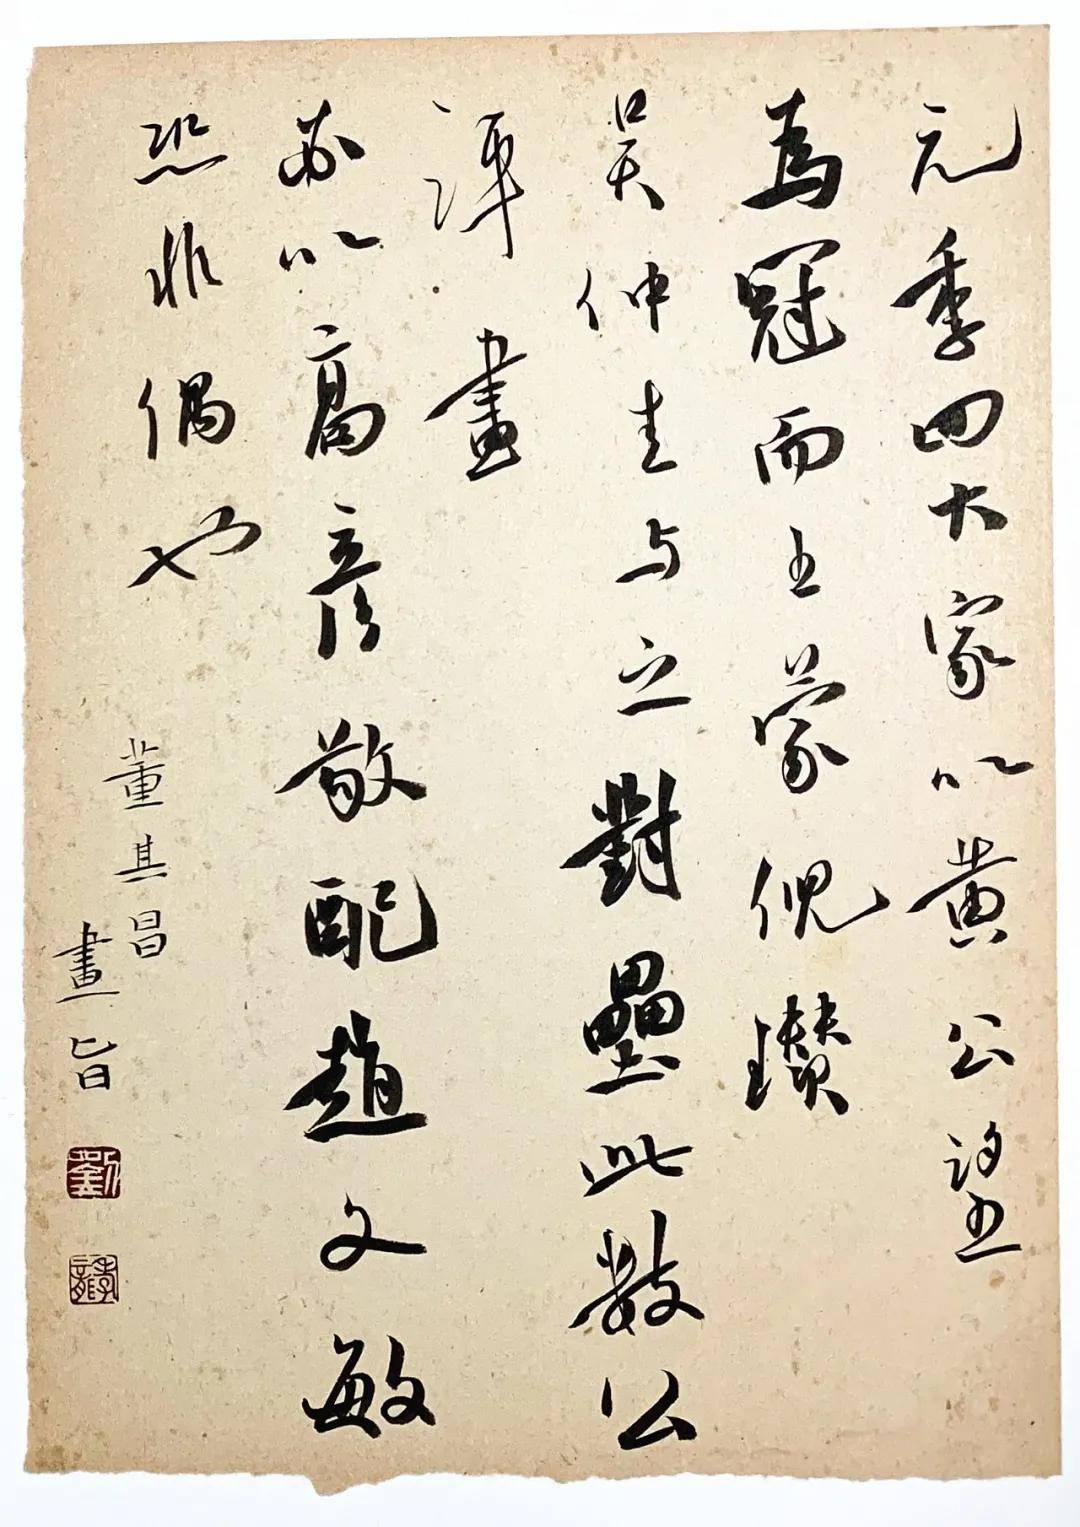 元季四大家以黄公望
為冠而王蒙倪瓚
吴仲圭与之對壘此數公
評畫
必以高彦敬配趙文敏
恐非偶也
董其昌
畫旨
劉